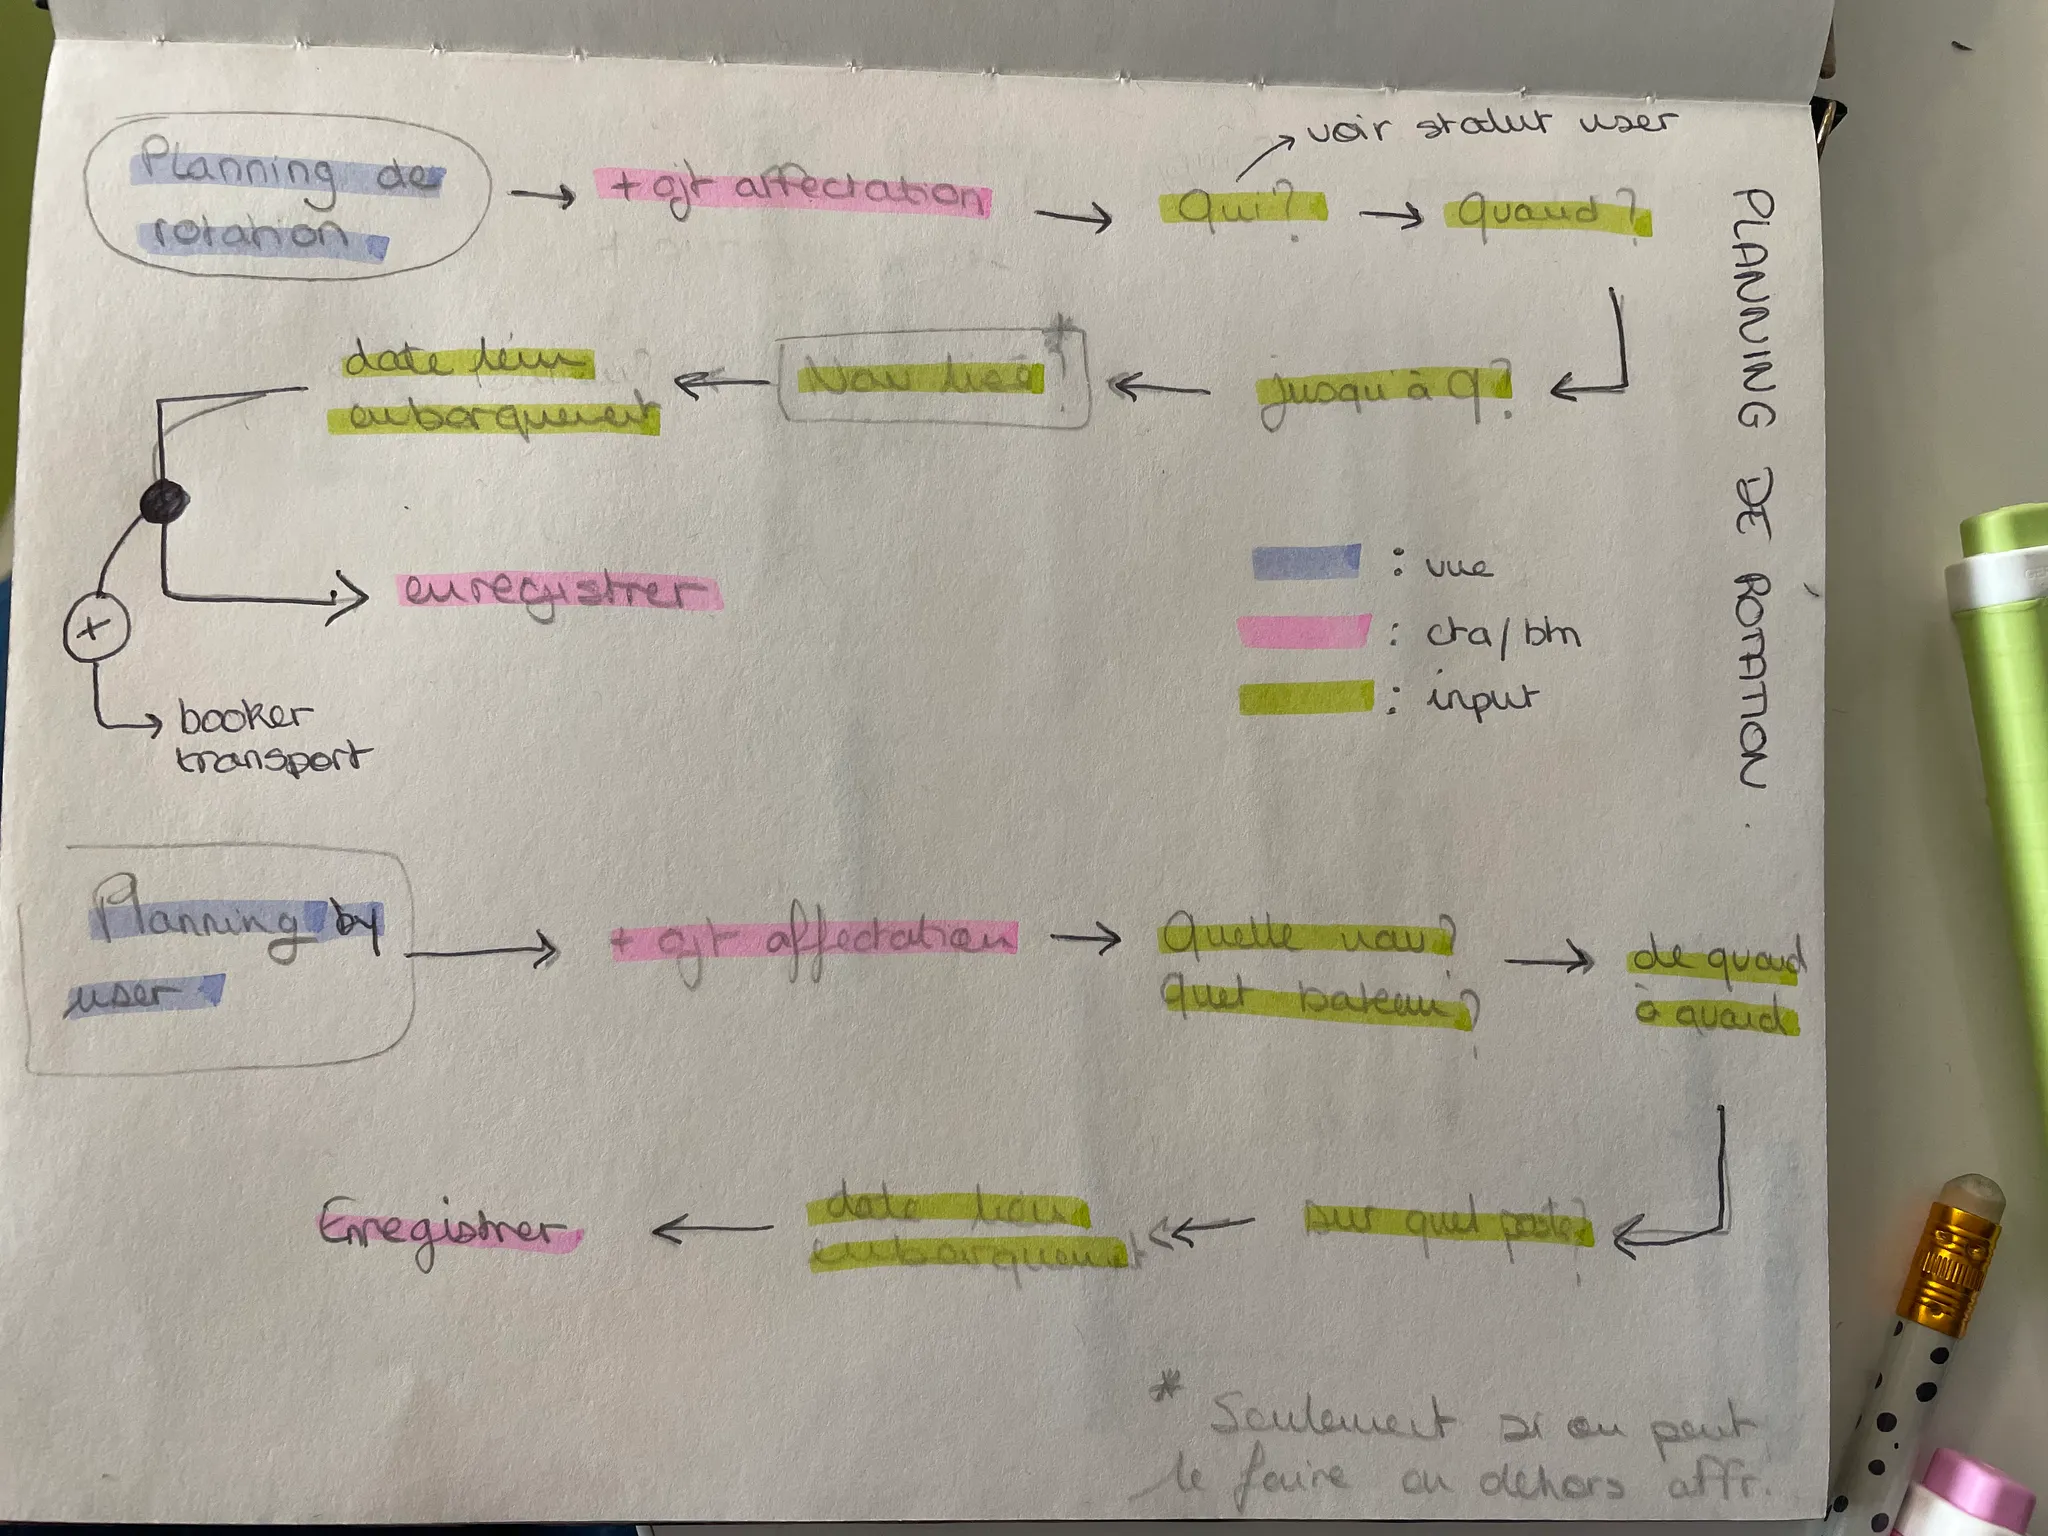 voir statut user
Planning de
rotation
+ ajt affectation
Qui?
quand?
PLANNING DE ROTATION
date lieu
embarquement
Nav liée? *
jusqu'à q?
enregistrer
: vue
: cta/btn
: input
+
booker
transport
Planning by
user
+ ajt affectation
Quelle nav?
quel bateau?
de quand
à quand
Enregistrer
date lieu
embarquement
sur quel poste?
* Seulement si on peut
le faire en dehors affr.